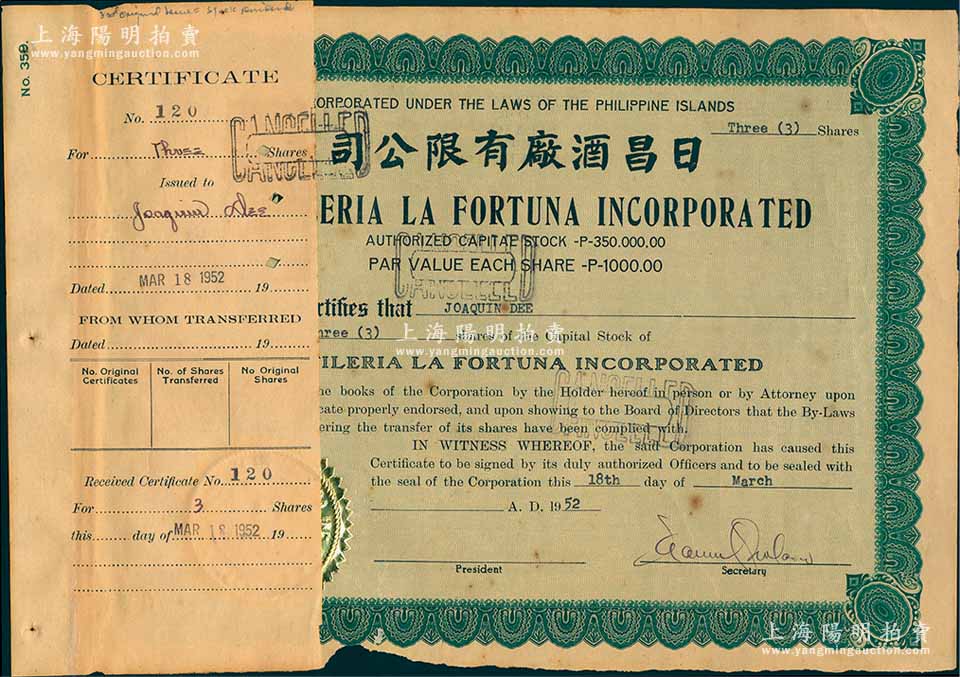 No. 359.
3rd Original
CERTIFICATE
No. 120
For Three Shares
Issued to
Joaquin Dee
Dated MAR 18 1952 19
FROM WHOM TRANSFERRED
Dated 19
No. Original Certificates
No. of Shares Transferred
No. Original Shares
Received Certificate No. 120
For 3 Shares
this day of MAR 18 1952 19
CANCELLED
CANCELLED
ORPORATED UNDER THE LAWS OF THE PHILIPPINE ISLANDS
Three (3) Shares
司公限有廠酒昌日
LERIA LA FORTUNA INCORPORATED
AUTHORIZED CAPITAL STOCK -P-350.000.00
PAR VALUE EACH SHARE -P-1000.00
CANCELLED
CANCELLED
rtifies that JOAQUIN DEE
hree (3) shares of the Capital Stock of
TILERIA LA FORTUNA INCORPORATED
CANCELLED
CANCELLED
he books of the Corporation by the Holder hereof in person or by Attorney upon
cate properly endorsed, and upon showing to the Board of Directors that the By-Laws
ering the transfer of its shares have been complied with.
IN WITNESS WHEREOF, the said Corporation has caused this
Certificate to be signed by its duly authorized Officers and to be sealed with
the seal of the Corporation this 18th day of March
A. D. 1952
President
Secretary
上海陽明拍賣
www.yangmingauction.com
上海陽明拍賣
www.yangmingauction.com
上海陽明拍賣
www.yangmingauction.com